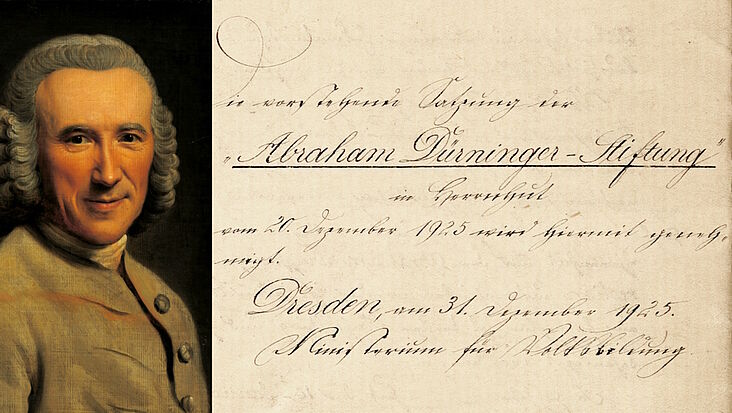 Die vorstehende Satzung der
„Abraham Dürninger-Stiftung"
in Herrnhut
vom 20. Dezember 1925 wird hiermit geneh-
migt.
Dresden, am 31. Dezember 1925.
Ministerium für Volksbildung.